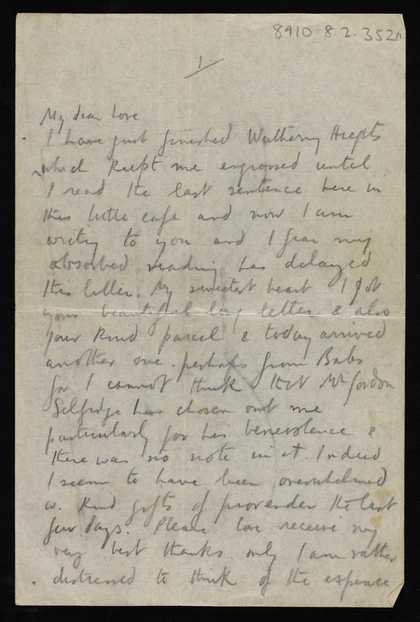 8910.8.2.352
1.
My dear love
I have just finished Wuthering Heights
which kept me engrossed until
I read the last sentence here in
this little cafe and now I am
writing to you and I fear my
absorbed reading has delayed
this letter. My sweetest heart I got
your beautiful long letter & also
your kind parcel & today arrived
another one. perhaps from Babs
for I cannot think that Mr Gordon
Selfridge has chosen out me
particularly for his benevolence &
there was no note in it. Indeed
I seem to have been overwhelmed
w. kind gifts of provender the last
few days. Please love receive my
very best thanks only I am rather
distressed to think of the expense